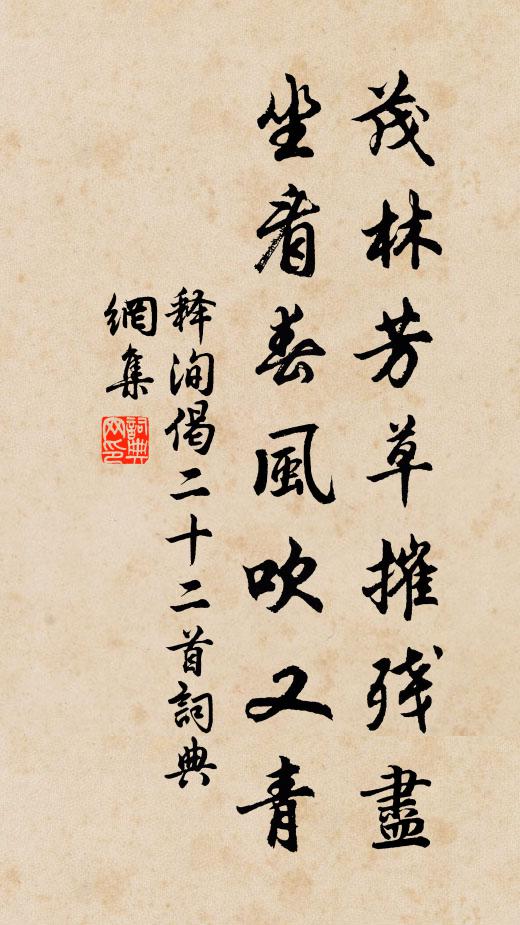 茂林芳草摧残盡
坐看春風吹又青
释洵偈二十二首詞典
網集
詞典網印